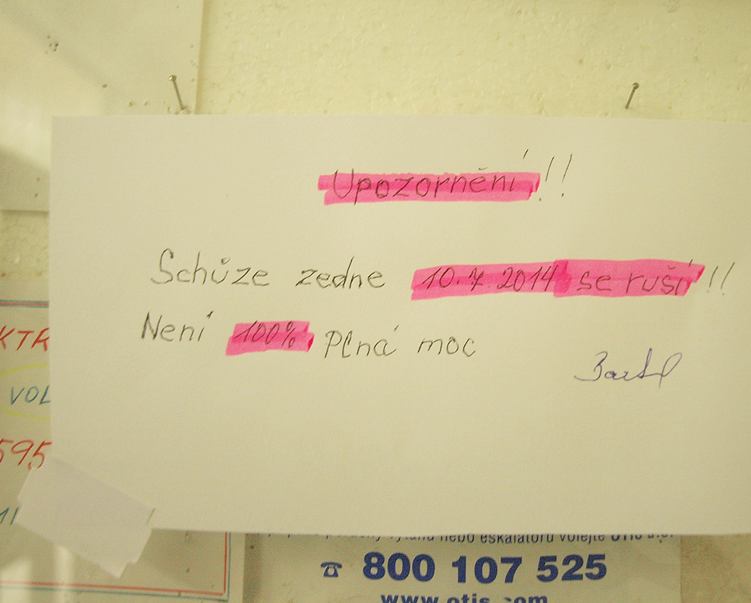 Upozornění!!
Schůze zedne 10.7.2014 se ruší!!
Není 100% Plná moc
KTR
VOL
595
nebo eskalátoru volejte
☎ 800 107 525
www.otis.com